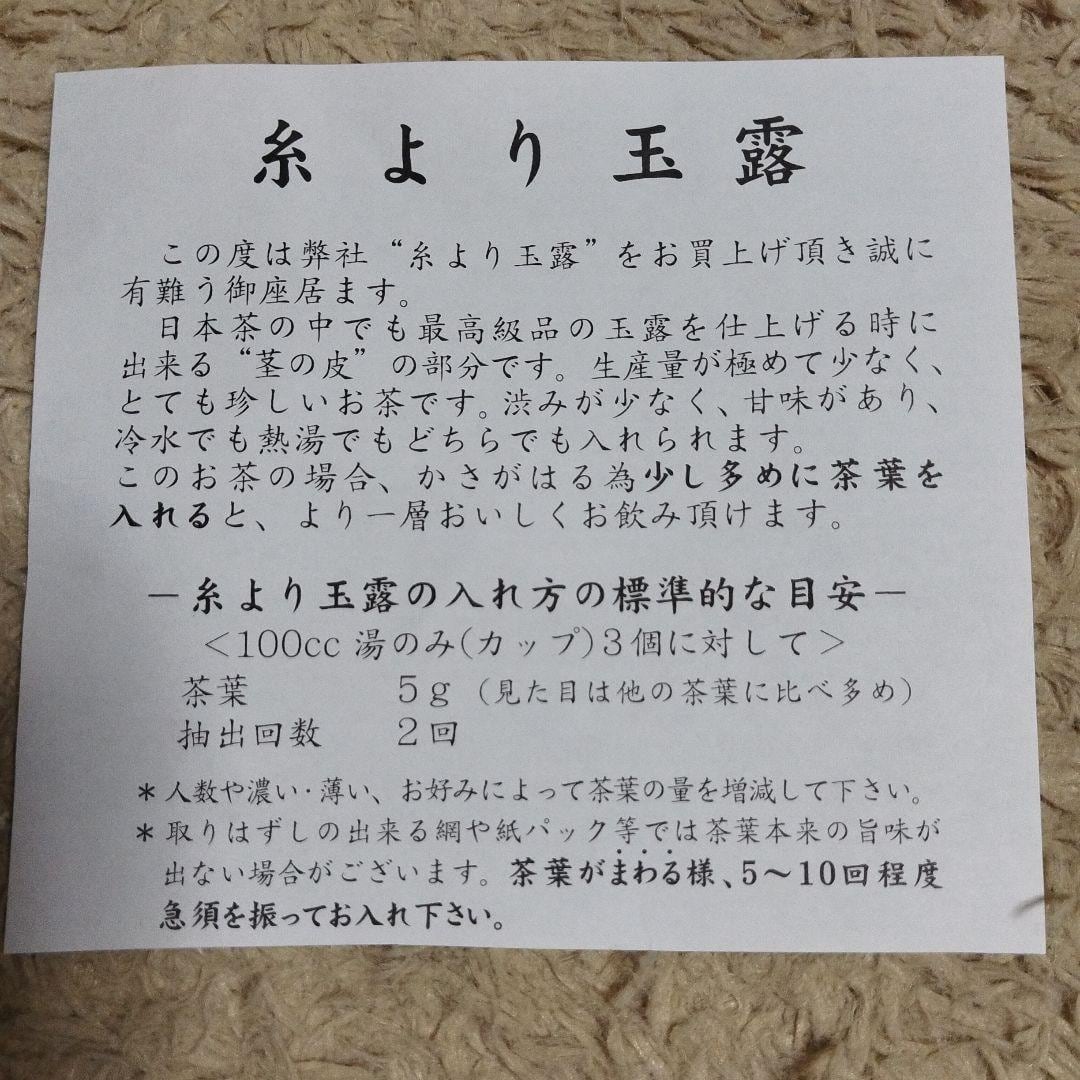 糸より玉露
この度は弊社“糸より玉露”をお買上げ頂き誠に
有難う御座居ます。
日本茶の中でも最高級品の玉露を仕上げる時に
出来る“茎の皮”の部分です。生産量が極めて少なく、
とても珍しいお茶です。渋みが少なく、甘味があり、
冷水でも熱湯でもどちらでも入れられます。
このお茶の場合、かさがはる為少し多めに茶葉を
入れると、より一層おいしくお飲み頂けます。
－糸より玉露の入れ方の標準的な目安－
＜100cc 湯のみ(カップ)3個に対して＞
茶葉 5g (見た目は他の茶葉に比べ多め)
抽出回数 2回
＊人数や濃い･薄い、お好みによって茶葉の量を増減して下さい。
＊取りはずしの出来る網や紙パック等では茶葉本来の旨味が
出ない場合がございます。茶葉がまわる様、5～10回程度
急須を振ってお入れ下さい。